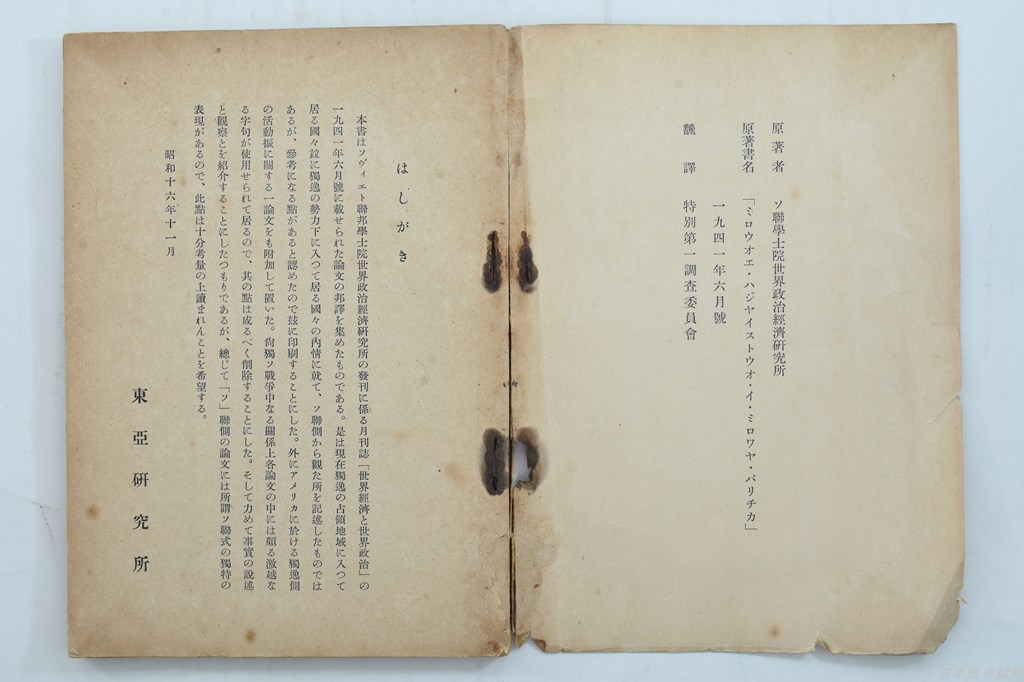 原著者　ソ聯學士院世界政治經濟研究所
原著書名　「ミロウオエ・ハジヤイストウオ・イ・ミロワヤ・パリチカ」
一九四一年六月號
飜譯　特別第一調査委員會
はしがき
本書はソヴィエト聯邦學士院世界政治經濟研究所の發刊に係る月刊誌「世界經濟と世界政治」の
一九四一年六月號に載せられた論文の邦譯を集めたものである。是は現在獨逸の占領地域に入つて
居る國々竝に獨逸の勢力下に入つて居る國々の內情に就て、ソ聯側から觀た所を記述したものでは
あるが、參考になる點があると認めたので玆に印刷することにした。外にアメリカに於ける獨逸側
の活動振に關する一論文をも附加して置いた。尙獨ソ戰爭中なる關係上各論文の中には頗る激越な
る字句が使用せられて居るので、其の點は成るべく削除することにした。そして力めて事實の說述
と觀察とを紹介することにしたつもりであるが、總じて「ソ」聯側の論文には所謂ソ聯式の獨特の
表現があるので、此點は十分考量の上讀まれんことを希望する。
昭和十六年十一月
東亞硏究所